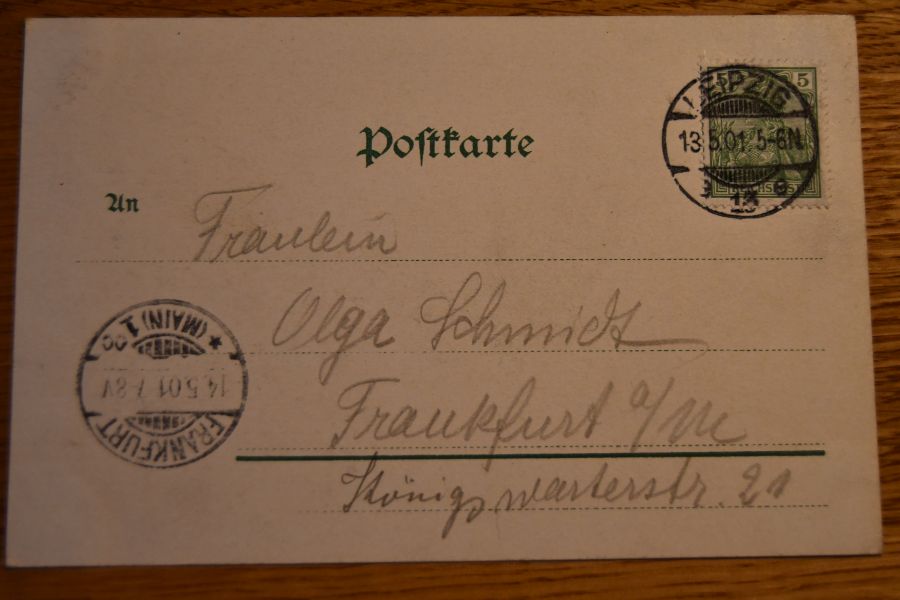 Postkarte
5 5
LEIPZIG
13.5.01. 5-6N.
13 e
An
Fräulein
Olga Schmidt
Frankfurt a/M
Königswarterstr. 21
FRANKFURT
14.5.01. 7-8V
* (MAIN) 1 oo